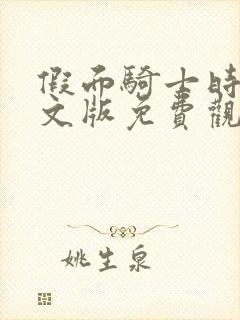 假面騎士時
文版免費觀
姚生泉